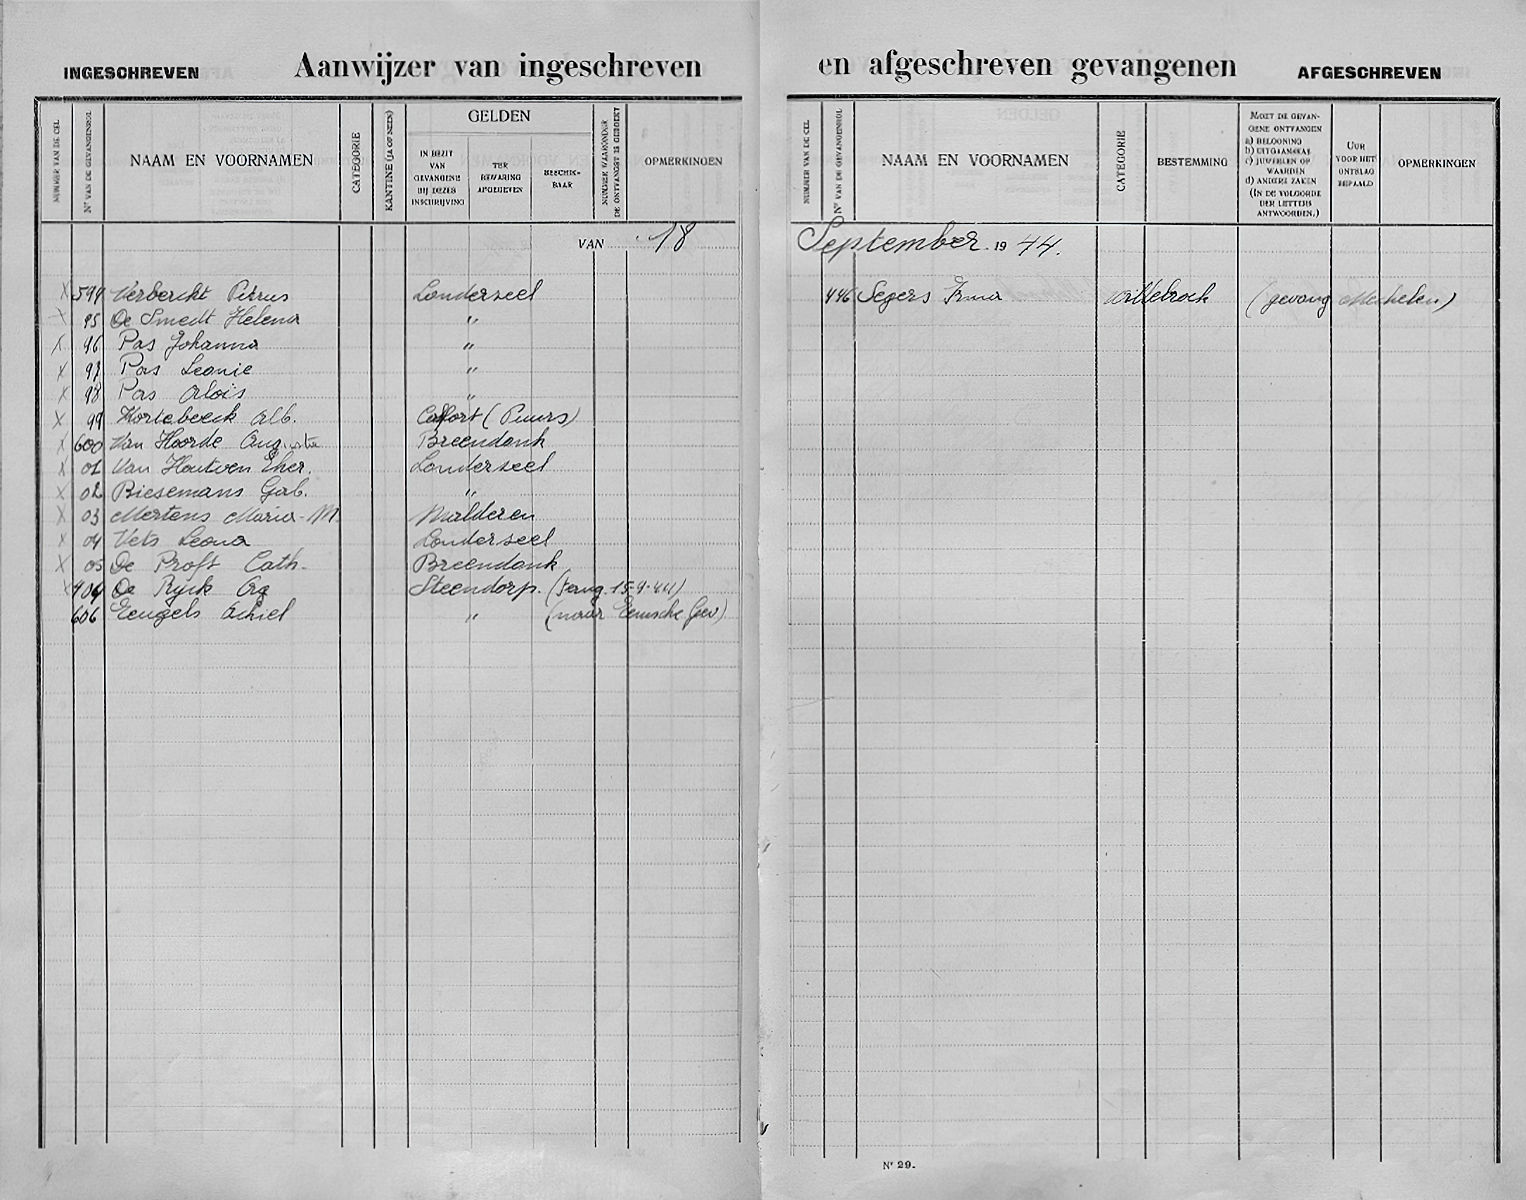 INGESCHREVEN Aanwijzer van ingeschreven en afgeschreven gevangenen AFGESCHREVEN
NUMMER VAN DE CEL
Nr VAN DE GEVANGENROL
NAAM EN VOORNAMEN
CATEGORIE
KANTINE (JA OF NEEN)
GELDEN
IN BEZIT
VAN
GEVANGENE
BIJ DEZES
INSCHRIJVING
TER
BEWARING
AFGEGEVEN
BESCHIK-
BAAR
NUMMER WAARONDER
DE ONTVANGST IS GEBOEKT
OPMERKINGEN
NUMMER VAN DE CEL
Nr VAN DE GEVANGENROL
NAAM EN VOORNAMEN
CATEGORIE
BESTEMMING
MOET DE GEVAN-
GENE ONTVANGEN
a) BELOONING
b) UITGAANSKAS
c) JUWEELEN OF
WAARDEN
d) ANDERE ZAKEN
(IN DE VOLGORDE
DER LETTERS
ANTWOORDEN.)
UUR
VOOR HET
ONTSLAG
BEPAALD
OPMERKINGEN
VAN 18 September 1944.
X 594 Verbercht Petrus Londerzeel
X 95 De Smedt Helena "
X 96 Pas Johanna "
X 97 Pas Leonie "
X 98 Pas Aloïs "
X 99 Kortebeeck Alb. (Puurs)
X 600 Van Hoorde Breendonk
X 01 Van Houtven Ther. Londerzeel
X 02 Biesemans Gab. "
X 03 Mertens Maria-M. Malderen
X 04 Vets Leona Londerzeel
X 05 De Proft Cath. Breendonk
X 404 De Ryck Steendorp. (terug 15-9-44)
606 Eeugels Achiel " (naar Gev)
446 Segers Irma Willebroek (gevang Mechelen)
Nr 29.